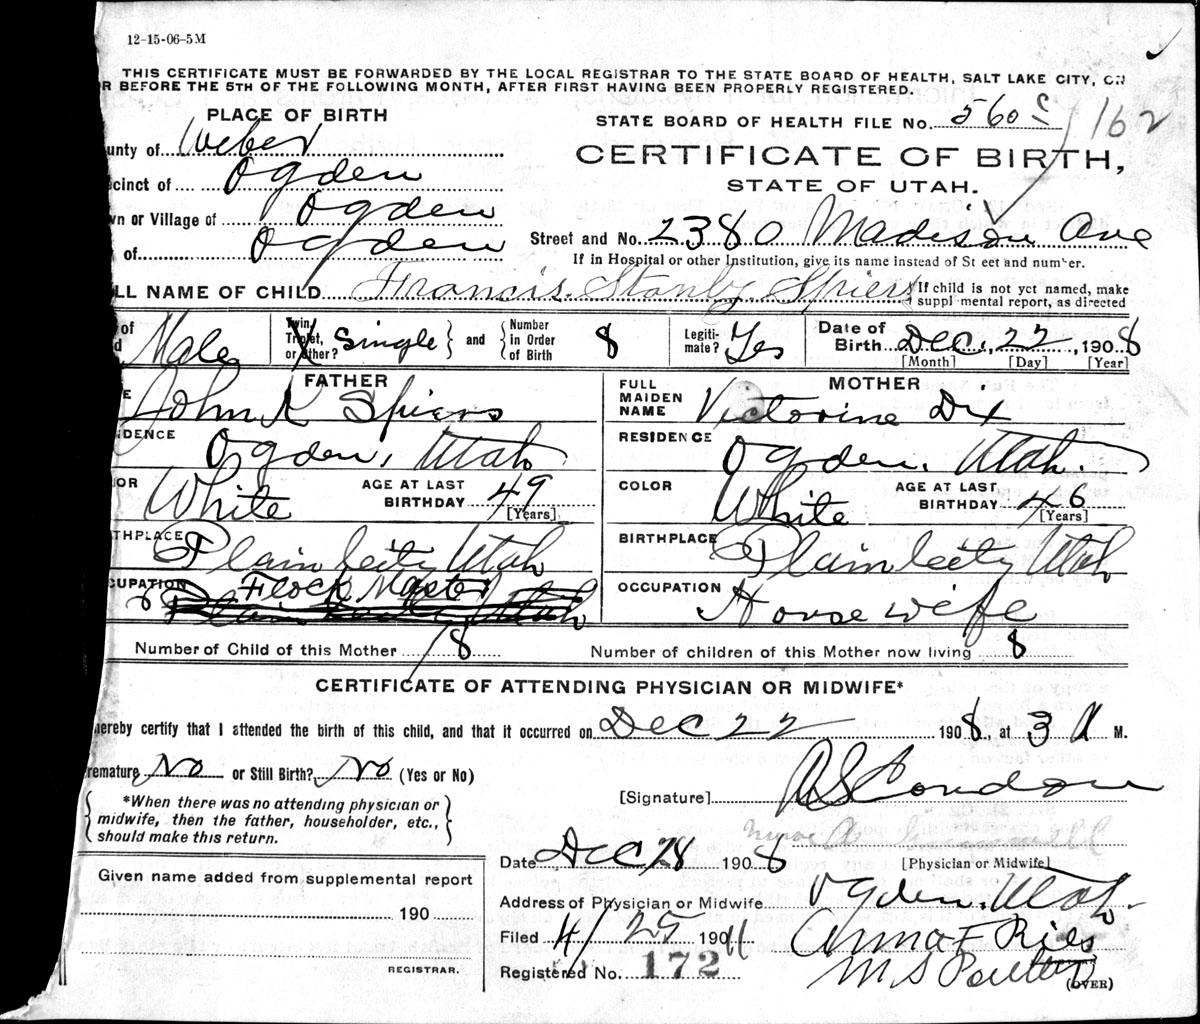 12-15-06-5M
THIS CERTIFICATE MUST BE FORWARDED BY THE LOCAL REGISTRAR TO THE STATE BOARD OF HEALTH, SALT LAKE CITY, ON
R BEFORE THE 5TH OF THE FOLLOWING MONTH, AFTER FIRST HAVING BEEN PROPERLY REGISTERED.
PLACE OF BIRTH
STATE BOARD OF HEALTH FILE No. 560 162
unty of Weber
CERTIFICATE OF BIRTH,
cinct of Ogden
STATE OF UTAH.
wn or Village of Ogden
of Ogden
Street and No. 2380 Madison Ave
If in Hospital or other Institution, give its name instead of St eet and number.
LL NAME OF CHILD Francis Stanly Spiers
If child is not yet named, make
suppl mental report, as directed
of Male
Twin, Triplet, or other? X Single and Number in Order of Birth 8
Legiti-mate? Yes
Date of Birth Dec. 22, 1908
[Month] [Day] [Year]
FATHER
John K Spiers
IDENCE
Ogden, Utah
OR White
AGE AT LAST BIRTHDAY 49
[Years]
THPLACE Plain City Utah
CUPATION Flock Master
Plain City Utah
MOTHER
FULL MAIDEN NAME Victorine Dix
RESIDENCE
Ogden. Utah.
COLOR White
AGE AT LAST BIRTHDAY 46
[Years]
BIRTHPLACE Plain City Utah
OCCUPATION
House wife
Number of Child of this Mother 8
Number of children of this Mother now living 8
CERTIFICATE OF ATTENDING PHYSICIAN OR MIDWIFE*
hereby certify that I attended the birth of this child, and that it occurred on Dec 22 1908, at 3 A M.
remature No or Still Birth? No (Yes or No)
*When there was no attending physician or
midwife, then the father, householder, etc.,
should make this return.
[Signature] A S Condon
Date Dec 28 1908
[Physician or Midwife]
Given name added from supplemental report
190
REGISTRAR.
Address of Physician or Midwife Ogden. Utah.
Filed 4/25 1911 Anna F Ries
Registered No. 172
M S
(OVER)